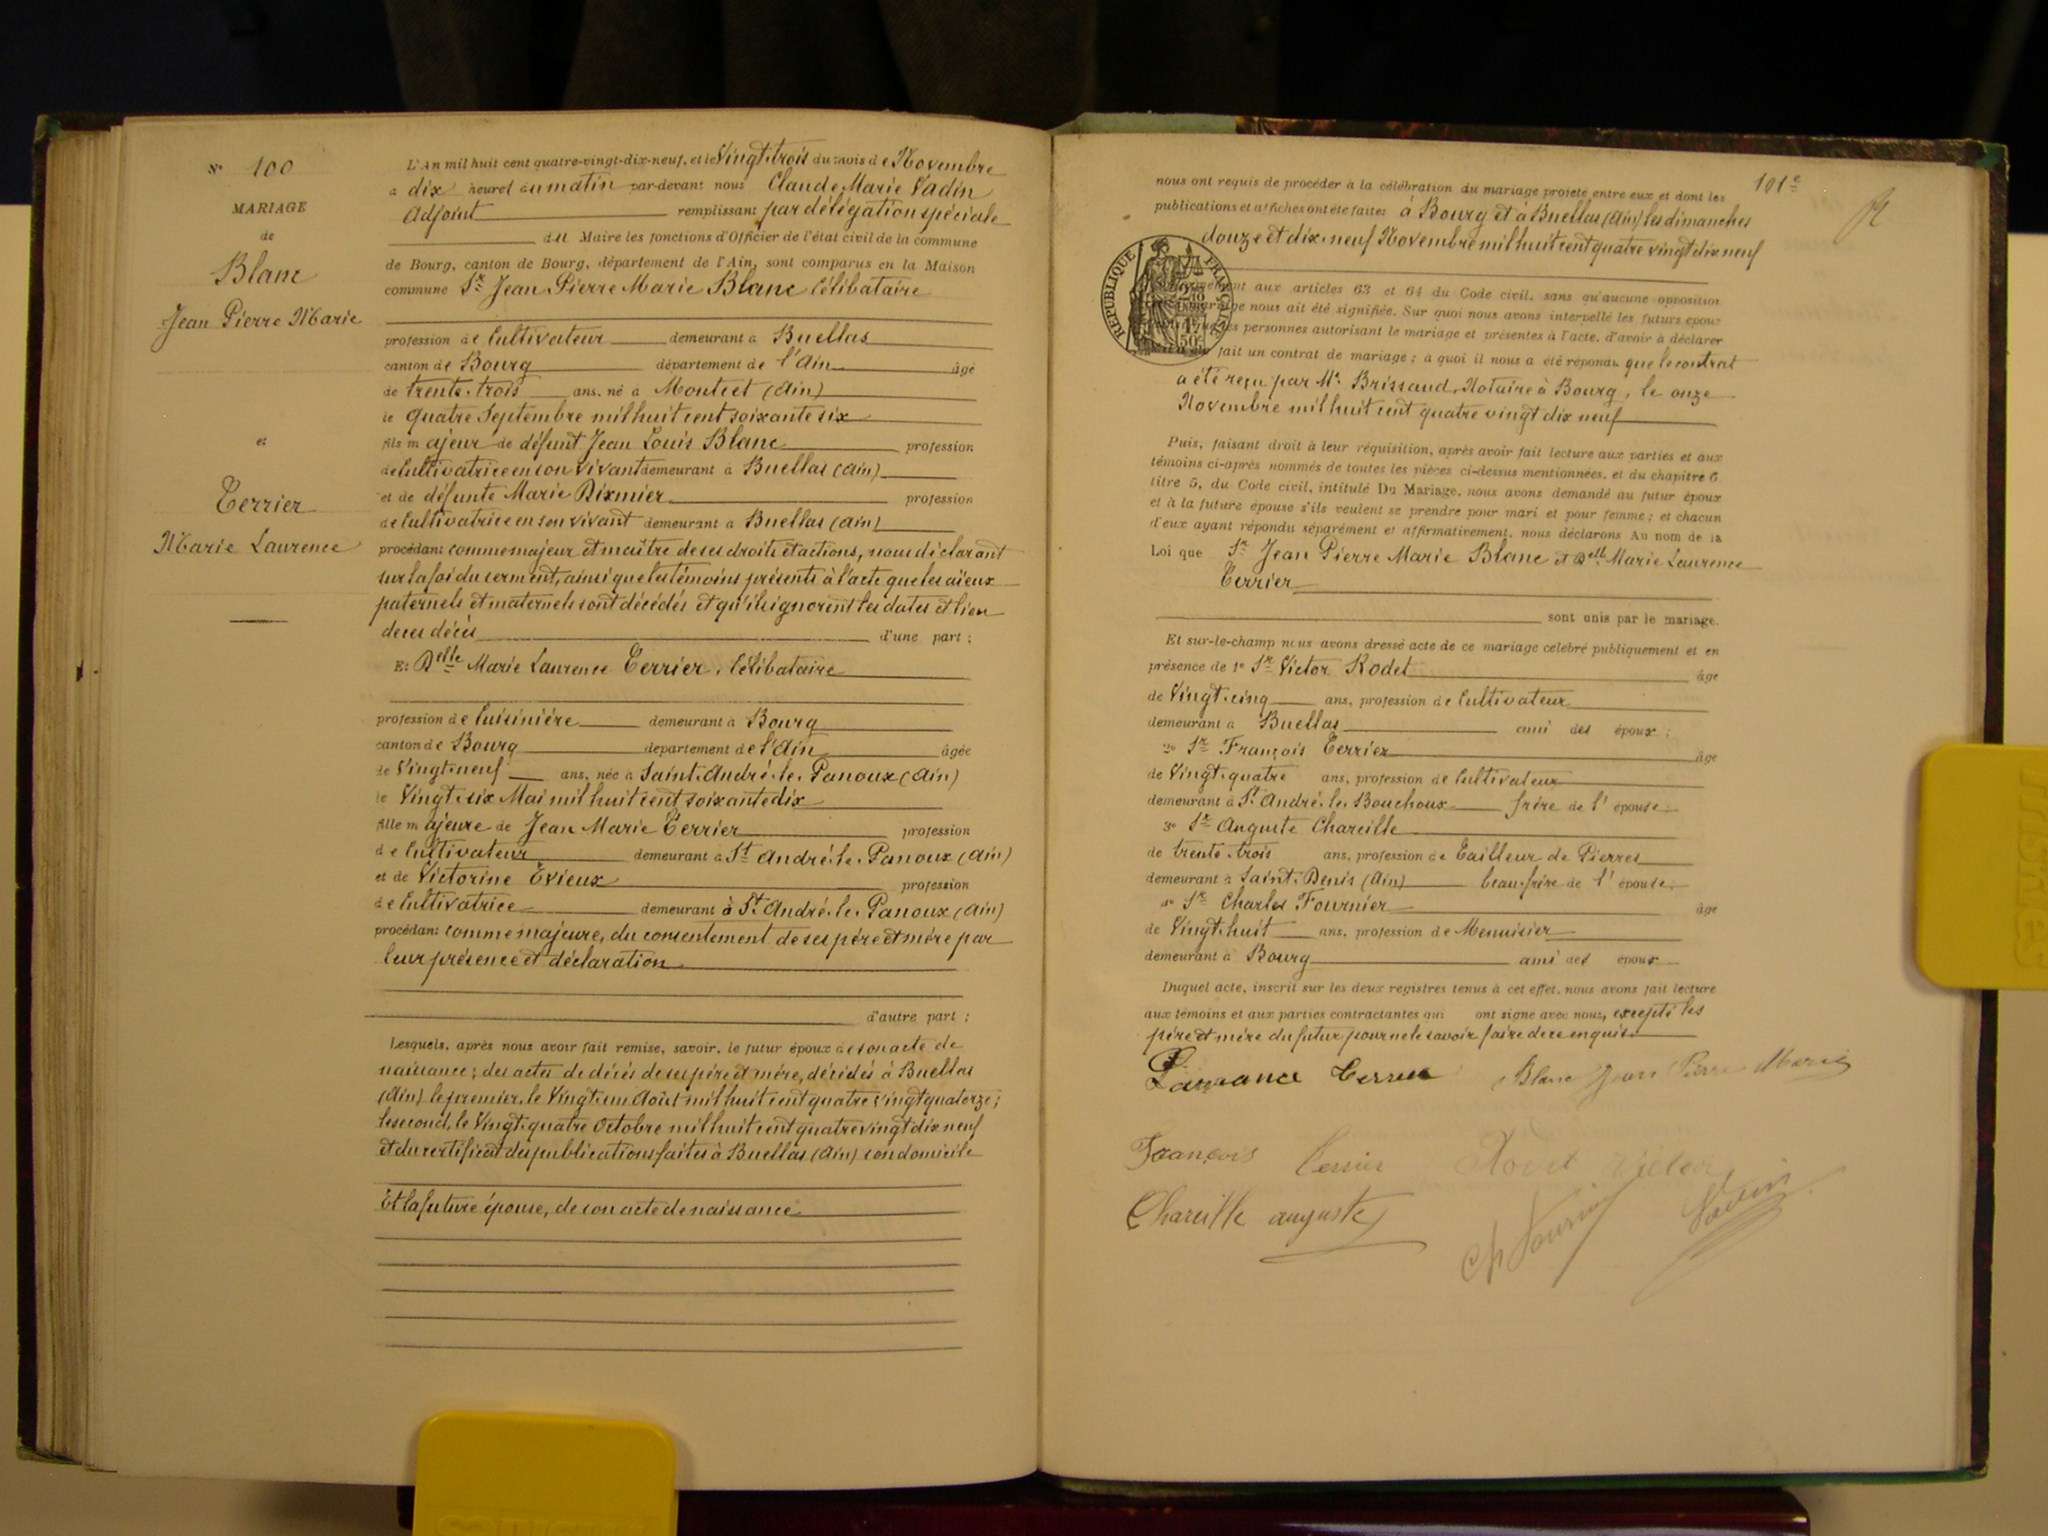 N° 100
MARIAGE
de
Blanc
Jean Pierre Marie
et
Terrier
Marie Laurence
L'An mil huit cent quatre-vingt-dix-neuf, et le Vingt-trois du mois de Novembre
à dix heures du matin par-devant nous Claude Marie Vadin
Adjoint remplissant par délégation spéciale
du Maire les fonctions d'Officier de l'état civil de la commune
de Bourg, canton de Bourg, département de l'Ain, sont comparus en la Maison
commune Sr Jean Pierre Marie Blanc Célibataire
profession de Cultivateur demeurant à Buellas
canton de Bourg département de l'Ain âgé
de trente-trois ans, né à Montcet (Ain)
le quatre Septembre mil huit cent soixante six
fils majeur de défunt Jean Louis Blanc profession
de Cultivatrice en son vivant demeurant à Buellas (Ain)
et de défunte Marie Dixmier profession
de Cultivatrice en son vivant demeurant à Buellas (Ain)
procédant comme majeur et maître de ses droits et actions, nous déclarant
sur la foi du serment, ainsi que les témoins présents à l'acte que les aïeux
paternels et maternels sont décédés et qu'ils ignorent les dates et lieu
de ces décès d'une part ;
Et Delle Marie Laurence Terrier, Célibataire
profession de Cuisinière demeurant à Bourg
canton de Bourg département de l'Ain âgée
de Vingt-neuf ans, née à Saint-André-le-Panoux (Ain)
le Vingt-six Mai mil huit cent soixante dix
fille majeure de Jean Marie Terrier profession
de Cultivateur demeurant à St André-le-Panoux (Ain)
et de Victorine Evieux profession
de Cultivatrice demeurant à St André-le-Panoux (Ain)
procédant comme majeure, du consentement de ses père et mère par
leur présence et déclaration
d'autre part ;
Lesquels, après nous avoir fait remise, savoir, le futur époux de son acte de
naissance ; des actes de décès de ses père et mère, décédés à Buellas
(Ain) le premier, le Vingt un Août mil huit cent quatre vingt quatorze ;
le second, le Vingt-quatre Octobre mil huit cent quatre vingt dix neuf
et du certificat des publications faites à Buellas (Ain) son domicile
Et la future épouse, de son acte de naissance
101e
nous ont requis de procéder à la célébration du mariage projeté entre eux et dont les
publications et affiches ont été faites à Bourg et à Buellas (Ain) les dimanches
douze et dix-neuf Novembre mil huit cent quatre vingt dix neuf
RÉPUBLIQUE FRANÇAISE
50c
aux articles 63 et 64 du Code civil, sans qu'aucune opposition
nous ait été signifiée. Sur quoi nous avons interpellé les futurs époux
personnes autorisant le mariage et présentes à l'acte, d'avoir à déclarer
fait un contrat de mariage ; à quoi il nous a été répondu que le contrat
a été reçu par Me Brissaud, Notaire à Bourg, le onze
Novembre mil huit cent quatre vingt dix neuf
Puis, faisant droit à leur réquisition, après avoir fait lecture aux parties et aux
témoins ci-après nommés de toutes les pièces ci-dessus mentionnées, et du chapitre 6
titre 5, du Code civil, intitulé Du Mariage, nous avons demandé au futur époux
et à la future épouse s'ils veulent se prendre pour mari et pour femme ; et chacun
d'eux ayant répondu séparément et affirmativement, nous déclarons Au nom de la
Loi que Sr Jean Pierre Marie Blanc et Delle Marie Laurence
Terrier
sont unis par le mariage.
Et sur-le-champ nous avons dressé acte de ce mariage célébré publiquement et en
présence de 1° Sr Victor Rodet âgé
de Vingt-cinq ans, profession de Cultivateur
demeurant à Buellas ami des époux ;
2° Sr François Terrier âgé
de Vingt-quatre ans, profession de Cultivateur
demeurant à St André-le-Bouchoux frère de l'épouse
3° Sr Auguste Chareille
de trente-trois ans, profession de Tailleur de Pierres
demeurant à Saint-Denis (Ain) beau-frère de l'épouse
4° Sr Charles Fournier âgé
de Vingt-huit ans, profession de Menuisier
demeurant à Bourg ami des époux
Duquel acte, inscrit sur les deux registres tenus à cet effet, nous avons fait lecture
aux témoins et aux parties contractantes qui ont signé avec nous, excepté les
père et mère du futur pour ne le savoir faire de ce enquis
Laurance Terrier Blanc Jean Pierre Marie
François Terrier Rodet Victor
Chareille auguste Ch Fournier Vadin